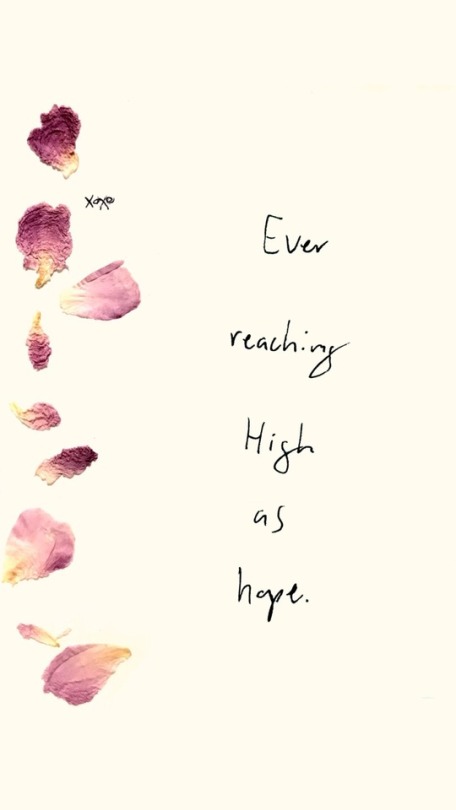 xoxo
Ever
reaching
High
as
hope.